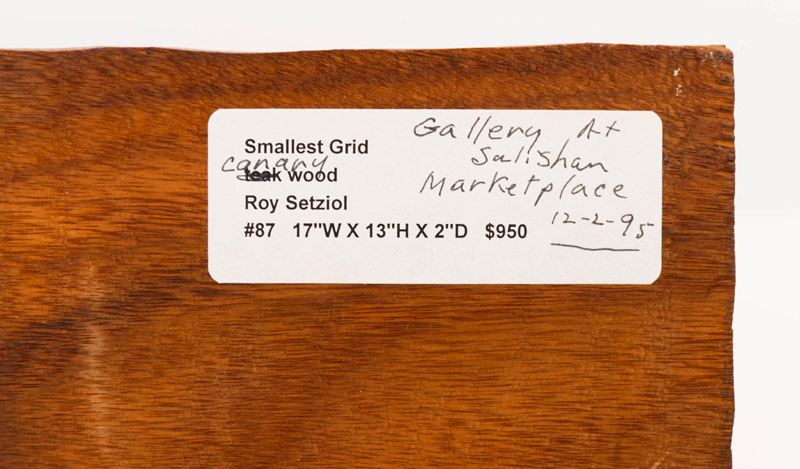 Smallest Grid
canary
teak wood
Roy Setziol
#87 17"W X 13"H X 2"D $950
Gallery At
Salishan
Marketplace
12-2-95